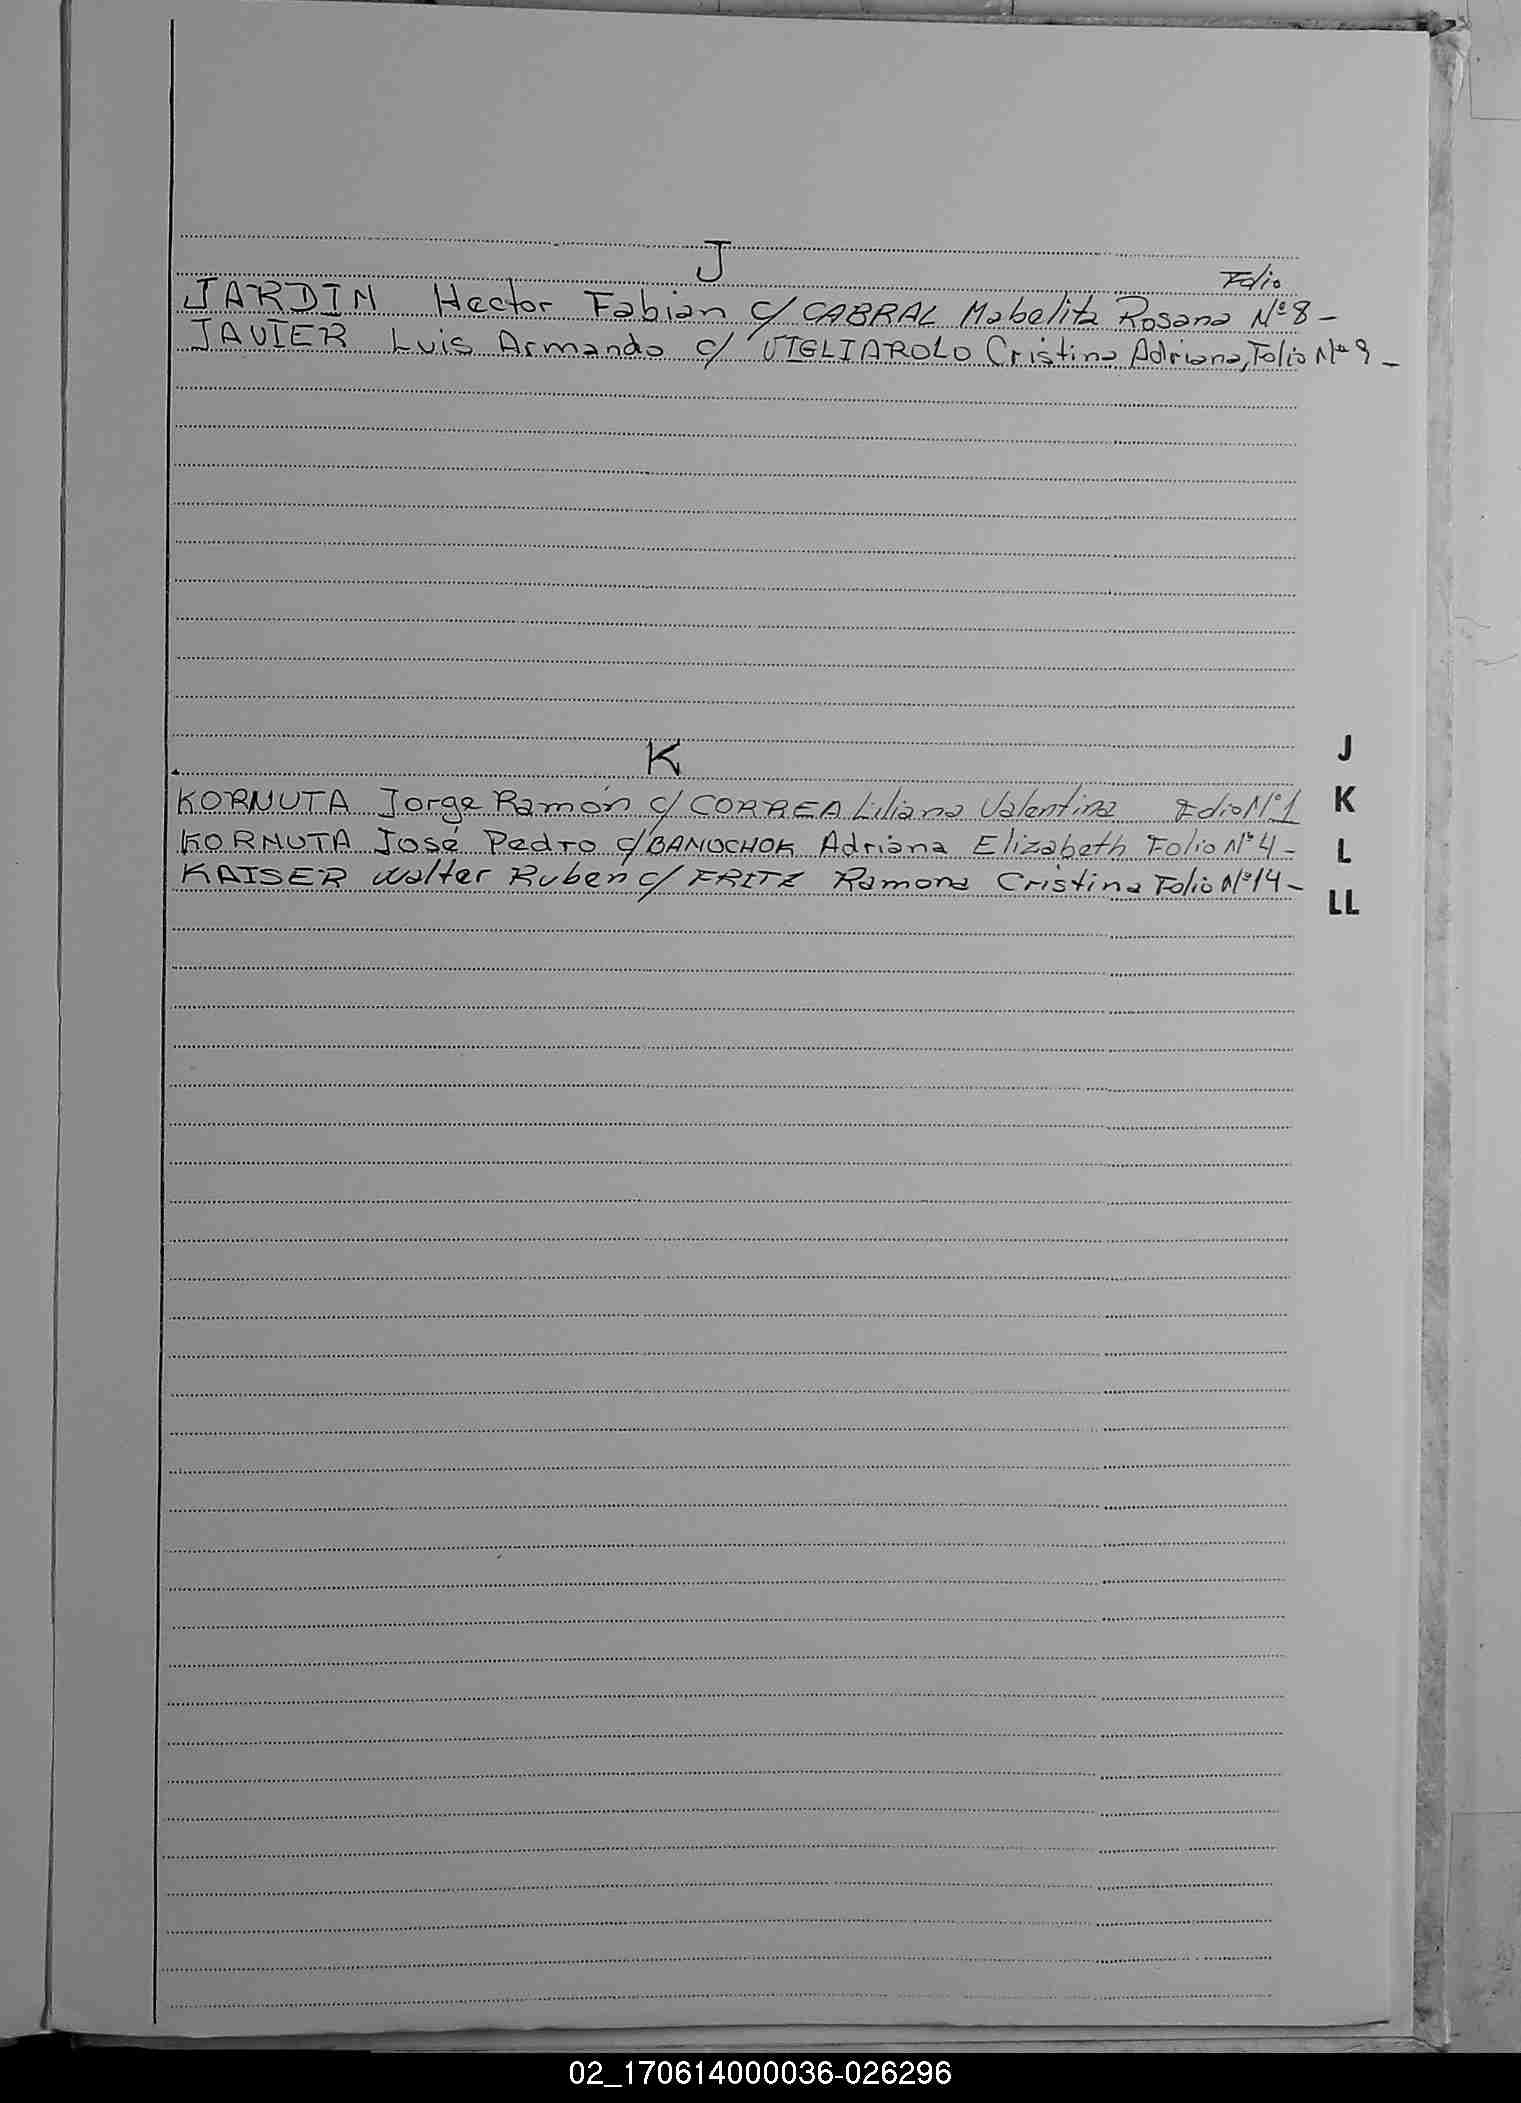 J
Folio
JARDIN Hector Fabian c/ CABRAL Mabelita Rosana Nº 8 -
JAVIER Luis Armando c/ VIGLIAROLO Cristina Adriana, Folio Nº 9 -
K
KORNUTA Jorge Ramón c/ CORREA Liliana Valentina Folio Nº 1
KORNUTA José Pedro c/ BANUCHOK Adriana Elizabeth Folio Nº 4 -
KAISER Walter Ruben c/ FRITZ Ramona Cristina Folio Nº 14 -
J
K
L
LL
02_170614000036-026296